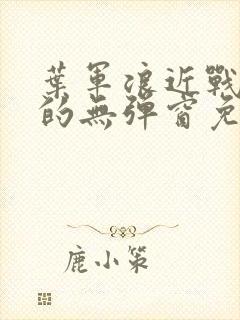 葉軍浪近戰
的無彈窗免
鹿小策